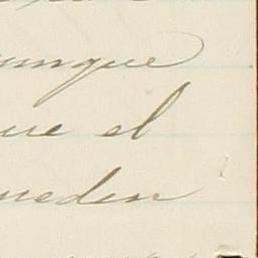 unque
ue el
ueden